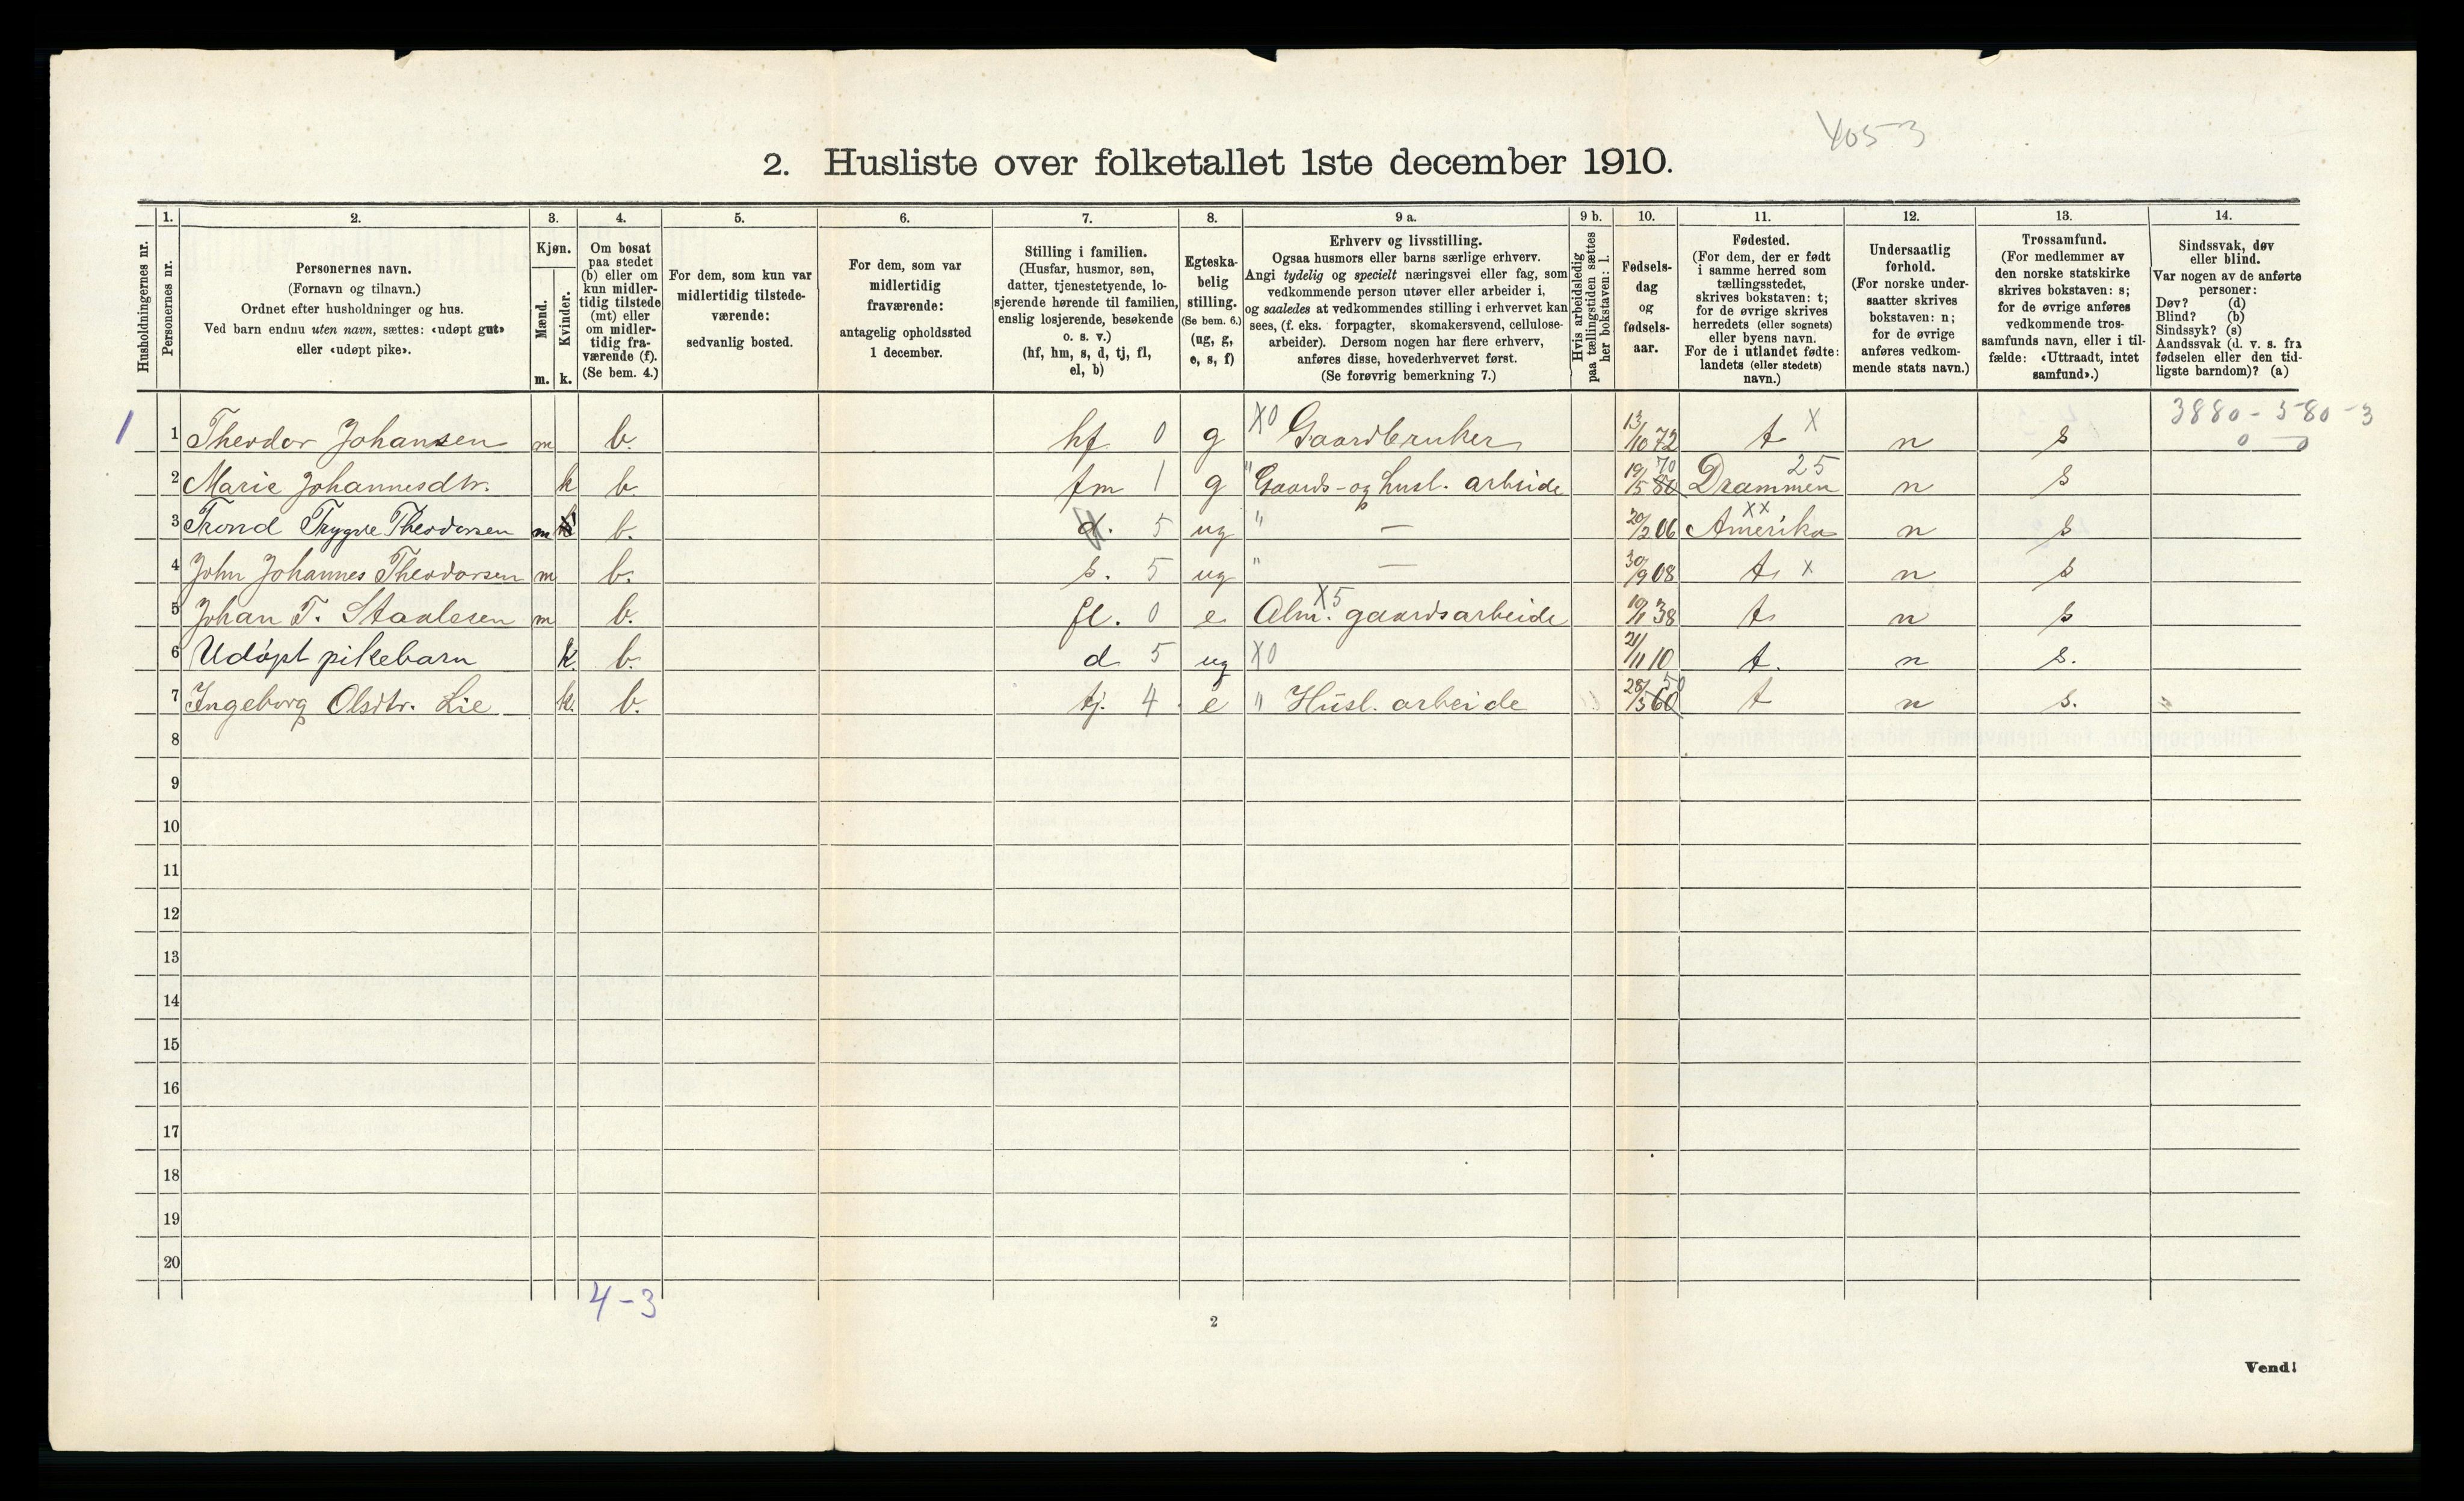 4053
2. Husliste over folketallet 1ste december 1910.
Husholdningernes nr.
1.
Personernes nr.
2.
Personernes navn.
(Fornavn og tilnavn.)
Ordnet efter husholdninger og hus.
Ved barn endnu uten navn, sættes: «udøpt gut»
eller «udøpt pike».
3.
Kjøn.
Mænd.
Kvinder.
m. k.
4.
Om bosat
paa stedet
(b) eller om
kun midler-
tidig tilstede
(mt) eller
om midler-
tidig fra-
værende (f).
(Se bem. 4.)
5.
For dem, som kun var
midlertidig tilstede-
værende:
sedvanlig bosted.
6.
For dem, som var
midlertidig
fraværende:
antagelig opholdssted
1 december.
7.
Stilling i familien.
(Husfar, husmor, søn,
datter, tjenestetyende, lo-
sjerende hørende til familien,
enslig losjerende, besøkende
o. s. v.)
(hf, hm, s, d, tj, fl,
el, b)
8.
Egteska-
belig
stilling.
(Se bem. 6.)
(ug, g,
e, s, f)
9 a.
Erhverv og livsstilling.
Ogsaa husmors eller barns særlige erhverv.
Angi tydelig og specielt næringsvei eller fag, som
vedkommende person utøver eller arbeider i,
og saaledes at vedkommendes stilling i erhvervet kan
sees, (f. eks. forpagter, skomakersvend, cellulose-
arbeider). Dersom nogen har flere erhverv,
anføres disse, hovederhvervet først.
(Se forøvrig bemerkning 7.)
9 b.
Hvis arbeidsledig
paa tællingstiden sættes
her bokstaven: l.
10.
Fødsels-
dag
og
fødsels-
aar.
11.
Fødested.
(For dem, der er født
i samme herred som
tællingsstedet,
skrives bokstaven: t;
for de øvrige skrives
herredets (eller sognets)
eller byens navn.
For de i utlandet fødte:
landets (eller stedets)
navn.)
12.
Undersaatlig
forhold.
(For norske under-
saatter skrives
bokstaven: n;
for de øvrige
anføres vedkom-
mende stats navn.)
13.
Trossamfund.
(For medlemmer av
den norske statskirke
skrives bokstaven: s;
for de øvrige anføres
vedkommende tros-
samfunds navn, eller i til-
fælde: «Uttraadt, intet
samfund».)
14.
Sindssvak, døv
eller blind.
Var nogen av de anførte
personer:
Døv? (d)
Blind? (b)
Sindssyk? (s)
Aandssvak (d. v. s. fra
fødselen eller den tid-
ligste barndom)? (a)
3880 - 580 - 3
0 0
1 1 Theodor Johansen m b. hf 0 g X0 Gaardbruker 13/10 72 t X n s
2 Marie Johannesdtr. k b. fm 1 g " Gaards- og husl. arbeide 19/5 80 70 Drammen 25 n s
3 Trond Trygve Theodorsen m k b. d. 5 ug " — 20/2 06 Amerika XX n s
4 John Johannes Theodorsen m b. s. 5 ug " — 30/9 08 t. X n s
5 Johan T. Staalesen m b. fl. 0 e Alm. gaardsarbeide X5 10/1 38 t. n s
6 Udøpt pikebarn k. b. d 5 ug X0 21/11 10 t. n s.
7 Ingeborg Olsdtr. Lie k. b. tj. 4 e " Husl. arbeide 28/3 60 50 t n s.
8
9
10
11
12
13
14
15
16
17
18
19
20
4-3
2
Vend!